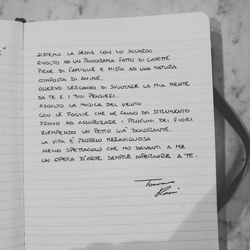 SISTEMO LA SEDIA CON LO SGUARDO
RIVOLTO AD UN PANORAMA FATTO DI CASETTE
PIENE DI FAMIGLIE E MISTA AD UNA NATURA
COMPOSTA DI ANIME.
OSSERVO CERCANDO DI SVUOTARE LA MIA MENTE
DA TE E I TUOI PENSIERI.
ASCOLTO LA MUSICA DEL VENTO
CON LE FOGLIE CHE NE FANNO DA STRUMENTO
PROVO AD ASSAPORARE I PROFUMI DEI FIORI
RIEMPENDO UN PETTO GIÀ DOLORANTE.
LA VITA È PROPRIO MERAVIGLIOSA
NELLO SPETTACOLO CHE HO DAVANTI A ME
UN OPERA D'ARTE SEMPRE INFERIORE A TE.